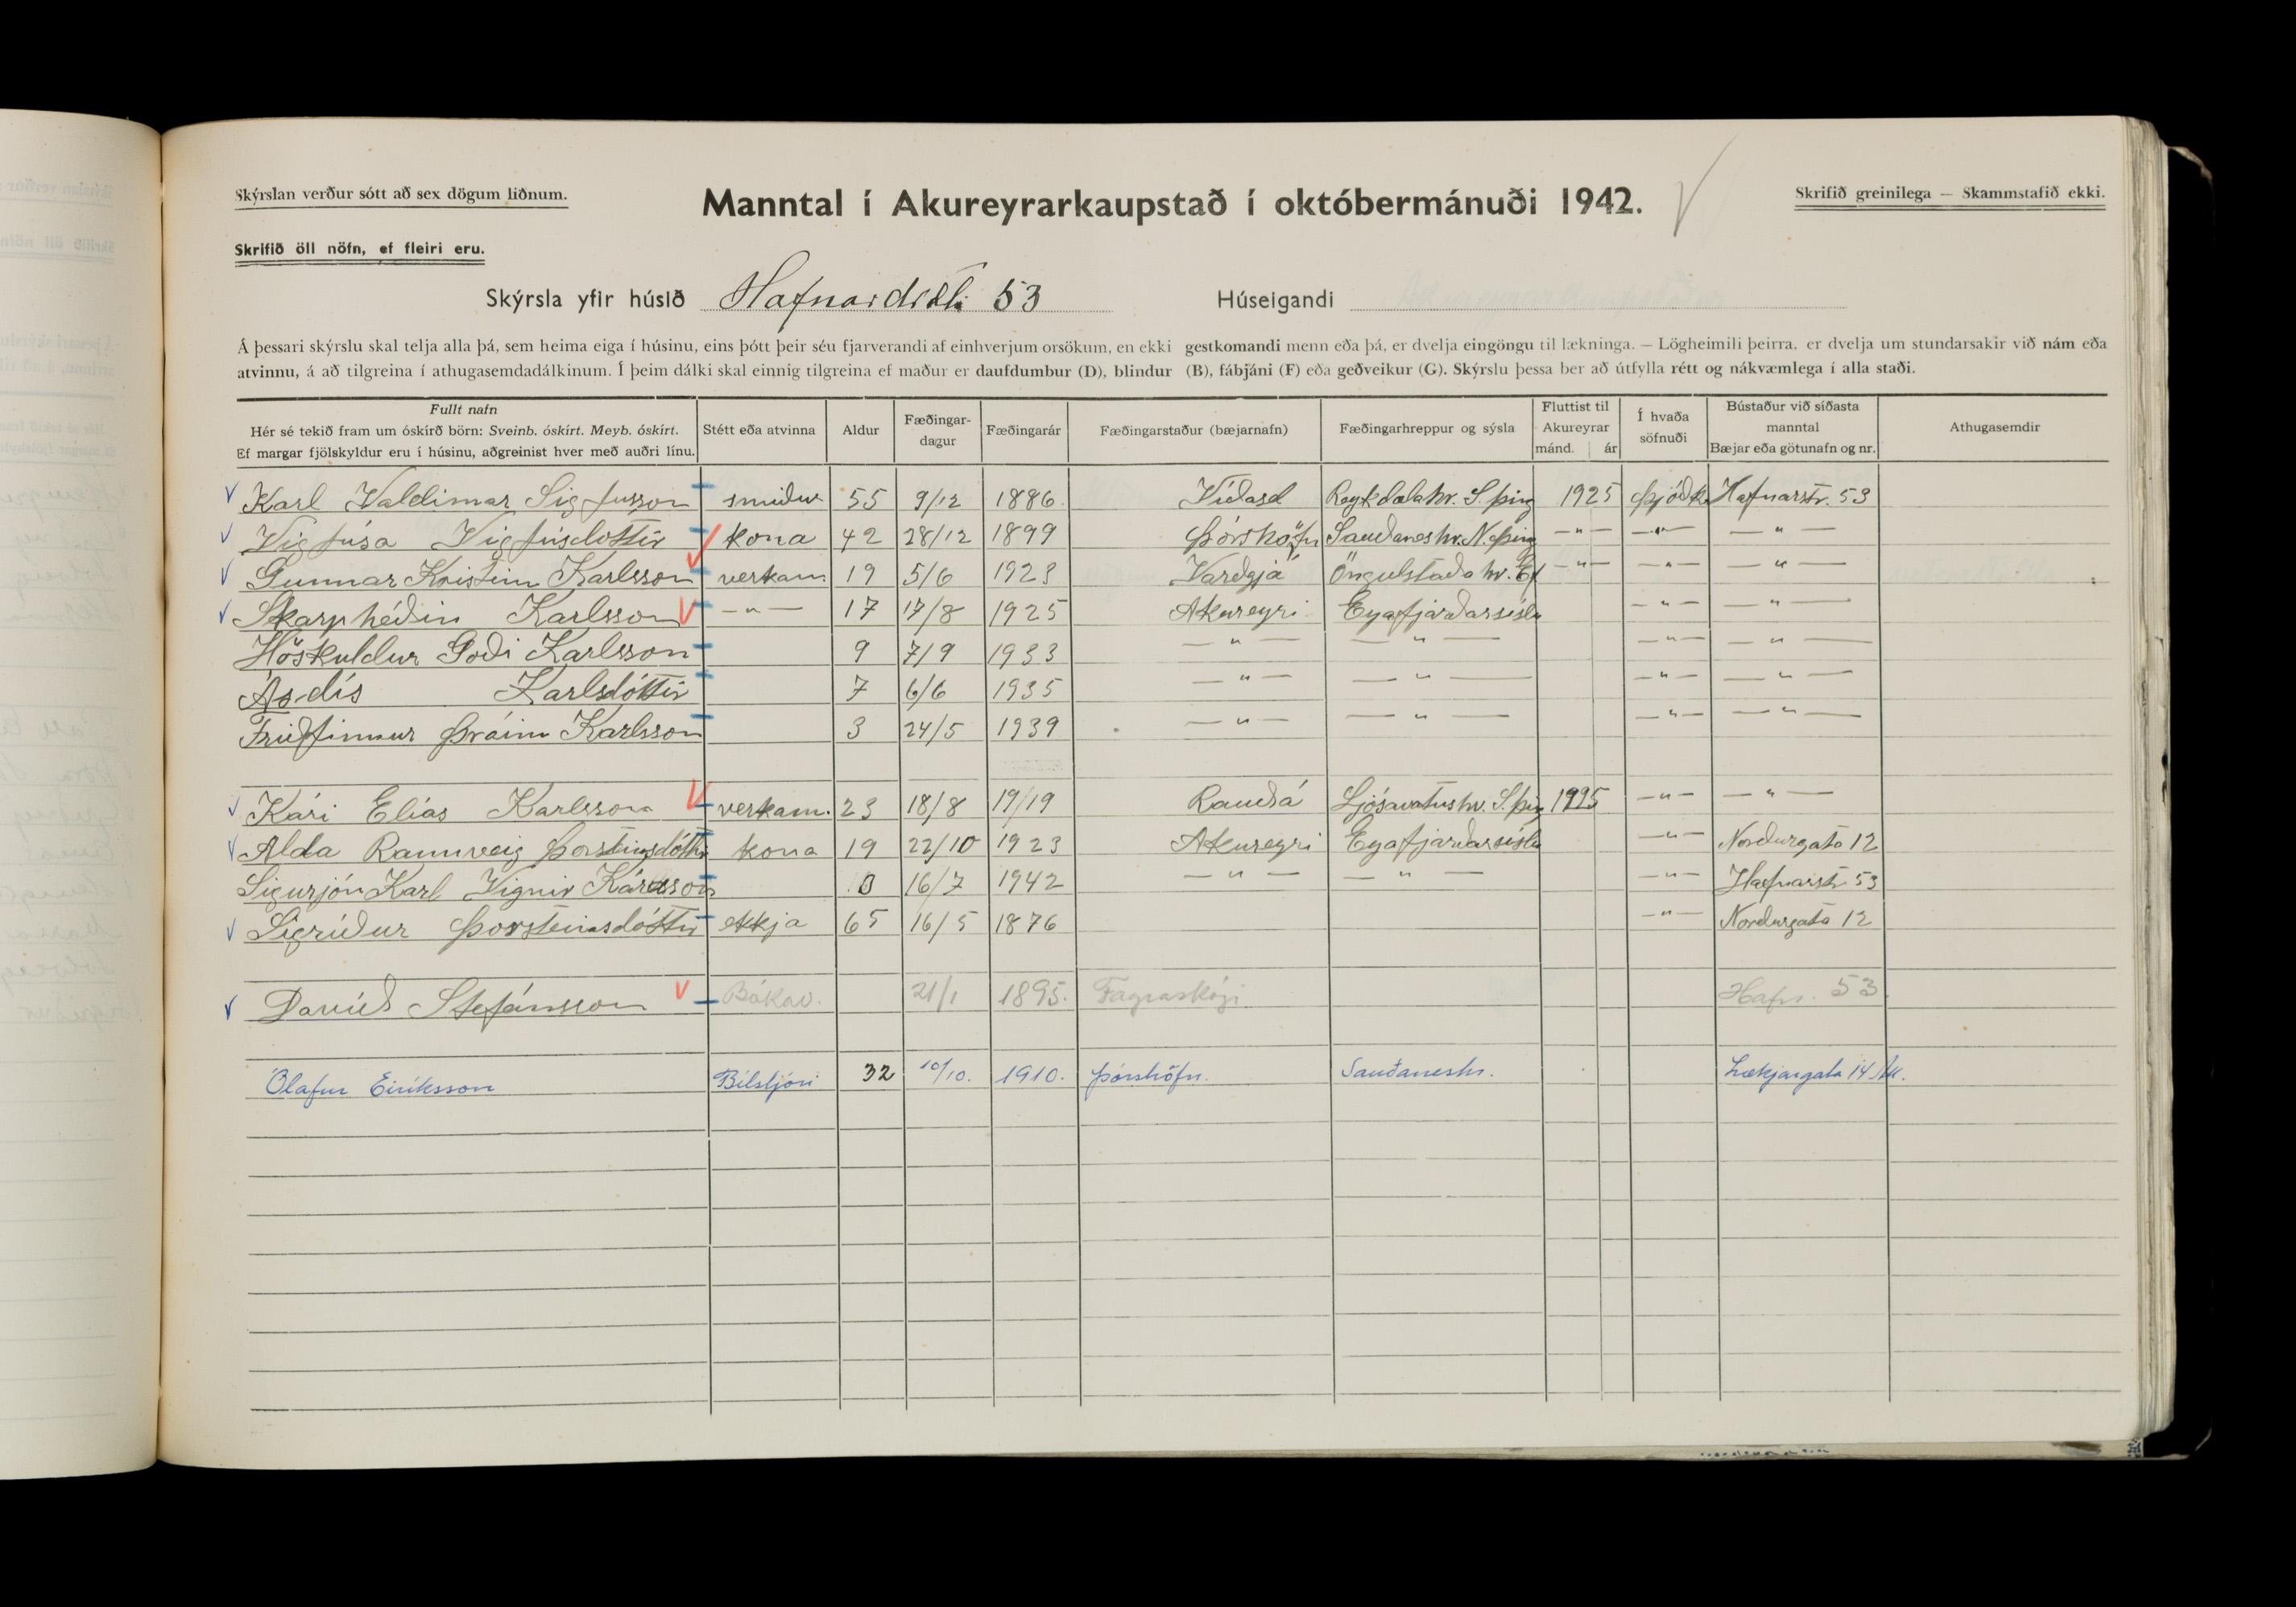 Skýrslan verður sótt að sex dögum liðnum.
Manntal í Akureyrarkaupstað í októbermánuði 1942.
Skrifið greinilega — Skammstafið ekki.
Skrifið öll nöfn, ef fleiri eru.
Skýrsla yfir húsið Hafnarstræti 53 Húseigandi
Á þessari skýrslu skal telja alla þá, sem heima eiga í húsinu, eins þótt þeir séu fjarverandi af einhverjum orsökum, en ekki gestkomandi menn eða þá, er dvelja eingöngu til lækninga. — Lögheimili þeirra, er dvelja um stundarsakir við nám eða
atvinnu, á að tilgreina í athugasemdadálkinum. Í þeim dálki skal einnig tilgreina ef maður er daufdumbur (D), blindur (B), fábjáni (F) eða geðveikur (G). Skýrslu þessa ber að útfylla rétt og nákvæmlega í alla staði.
Fullt nafn
Hér sé tekið fram um óskírð börn: Sveinb. óskírt. Meyb. óskírt.
Ef margar fjölskyldur eru í húsinu, aðgreinist hver með auðri línu.
Stétt eða atvinna
Aldur
Fæðingar-
dagur
Fæðingarár
Fæðingarstaður (bæjarnafn)
Fæðingarhreppur og sýsla
Fluttist til
Akureyrar
mánd. ár
Í hvaða
söfnuði
Bústaður við síðasta
manntal
Bæjar eða götunafn og nr.
Athugasemdir
Karl Valdimar Sigfusson smiður 55 9/12 1886 Víðasel Reykdælahr. S. þing 1925 Þjóðk. Hafnarstr. 53
Vigfúsa Vigfúsdottir kona 42 28/12 1899 Þórshöfn Sauðaneshr. N. þing —"— —"— —"—
Gunnar Kristinn Karlsson verkam. 19 5/6 1923 Varðgjá Öngulstaða hr. Ef —"— —"— —"—
Skarphéðin Karlsson —"— 17 17/8 1925 Akureyri Eyafjarðarsísla —"— —"—
Höskuldur Goði Karlsson 9 7/9 1933 —"— —"— —"— —"—
Ásdís Karlsdóttir 7 6/6 1935 —"— —"— —"— —"—
Friðfinnur Þráinn Karlsson 3 24/5 1939 —"— —"— —"— —"—
Kári Elías Karlsson verkam. 23 18/8 19/19 Rauðá Ljósavatnshr. S. þing 1925 —"— —"—
Alda Rannveig Þorsteinsdóttir kona 19 22/10 1923 Akureyri Eyafjarðarsísla —"— Norðurgata 12
Sigurjón Karl Vignir Kárason 0 16/7 1942 —"— —"— —"— Hafnarstr 53
Sigríður Þorsteinsdóttir ekkja 65 16/5 1876 —"— Norðurgata 12
Davíð Stefánsson Bókav. 21/1 1895. Fagraskógi Hafn. 53.
Ólafur Eiríksson Bílstjóri 32 10/10. 1910. Þórshöfn. Sauðaneshr. Lækjargata 14 Ak.